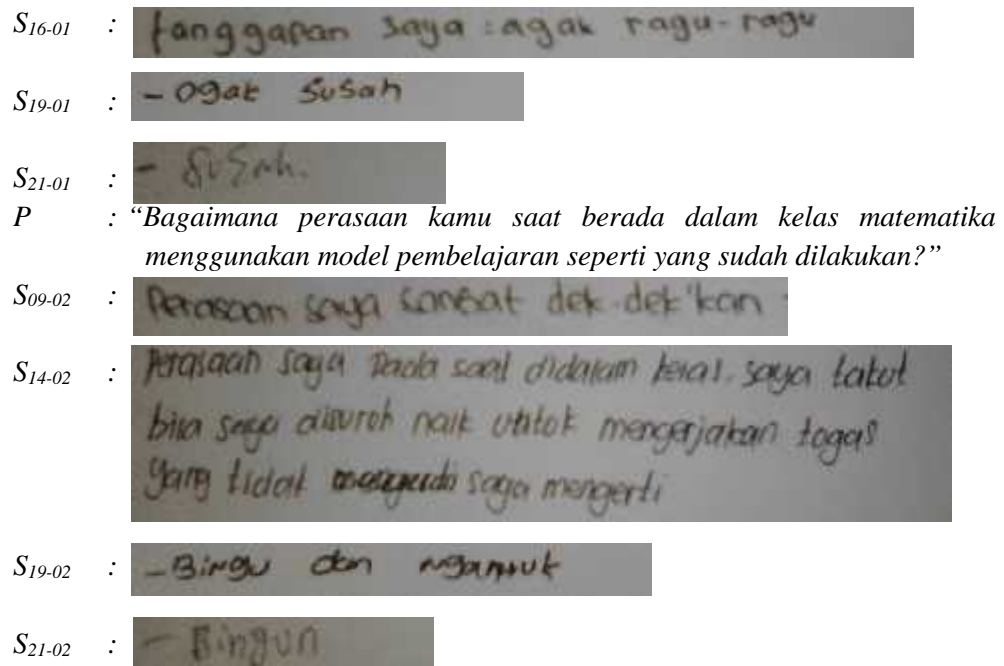 S16-01 : tanggapan saya : agak ragu-ragu
S19-01 : - agak susah
S21-01 : - susah.
P : “Bagaimana perasaan kamu saat berada dalam kelas matematika
menggunakan model pembelajaran seperti yang sudah dilakukan?”
S09-02 : Perasaan saya sangat dek-dek'kan
S14-02 : Perasaan saya pada saat didalam kelas, saya takut
bila saya disuroh naik untok mengerjakan togas
yang tidak saya mengerti
S19-02 : - Bingu dan ngantuk
S21-02 : - Bingun